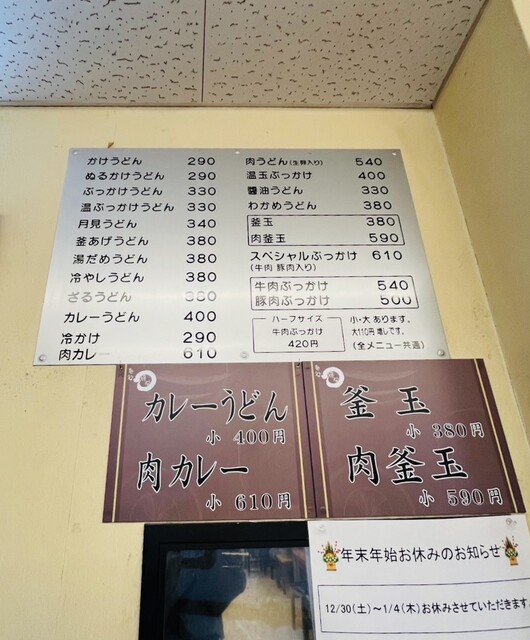 かけうどん 290
ぬるかけうどん 290
ぶっかけうどん 330
温ぶっかけうどん 330
月見うどん 340
釜あげうどん 380
湯だめうどん 380
冷やしうどん 380
ざるうどん 380
カレーうどん 400
冷かけ 290
肉カレー 610
肉うどん(生野入り) 540
温玉ぶっかけ 400
醬油うどん 330
わかめうどん 380
釜玉 380
肉釜玉 590
スペシャルぶっかけ 610
(牛肉 豚肉入り)
牛肉ぶっかけ 540
豚肉ぶっかけ 500
ハーフサイズ
牛肉ぶっかけ
420円
小・大 あります。
大110円 増しです。
(全メニュー共通)
カレーうどん
小 400円
肉カレー
小 610円
釜玉
小 380円
肉釜玉
小 590円
年末年始お休みのお知らせ
12/30(土)～1/4(木)お休みさせていただきます。